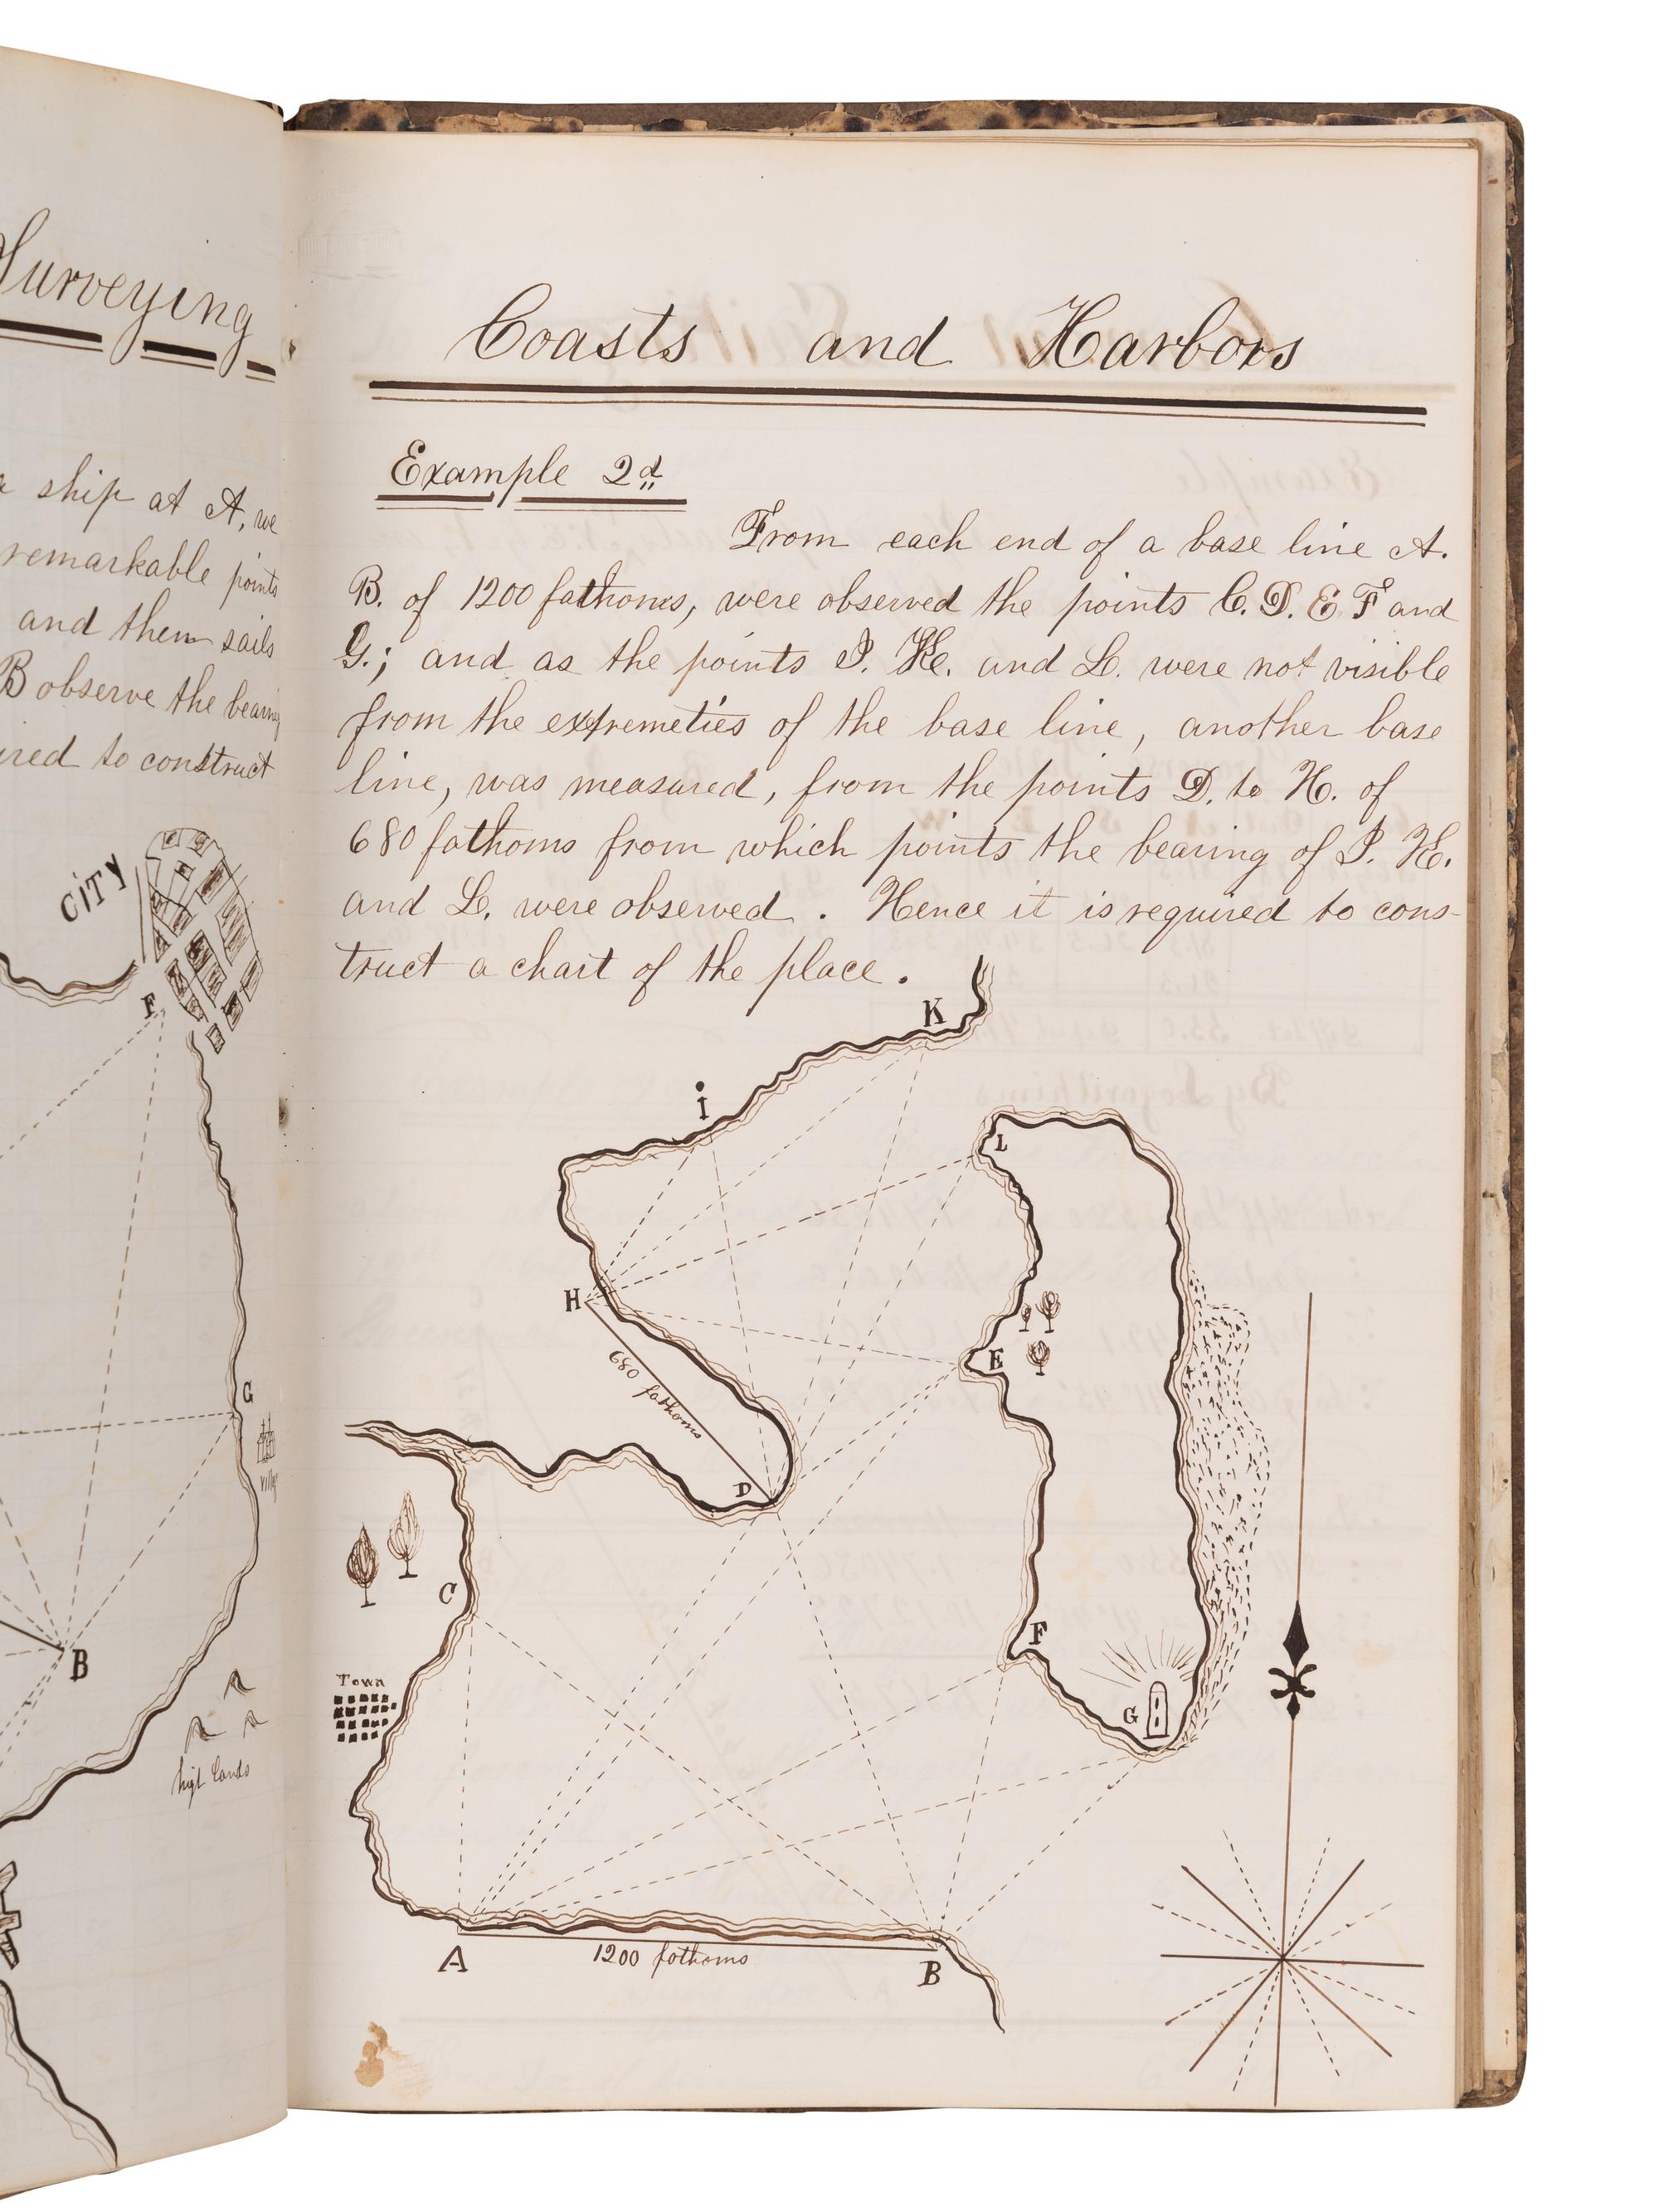 Surveying
ship at A, we
remarkable points
and then sails
B observe the bearing
to construct
CITY
F
G
B
high lands
Coasts and Harbors
Example 2d
From each end of a base line A.
B. of 1200 fathoms, were observed the points C. D. E. F and
G.; and as the points I. K. and L. were not visible
from the extremeties of the base line, another base
line, was measured, from the points D. to H. of
680 fathoms from which points the bearing of I. K.
and L. were observed. Hence it is required to cons-
truct a chart of the place.
K
i
L
H
E
680 fathoms
D
C
F
Town
G
A
1200 fathoms
B